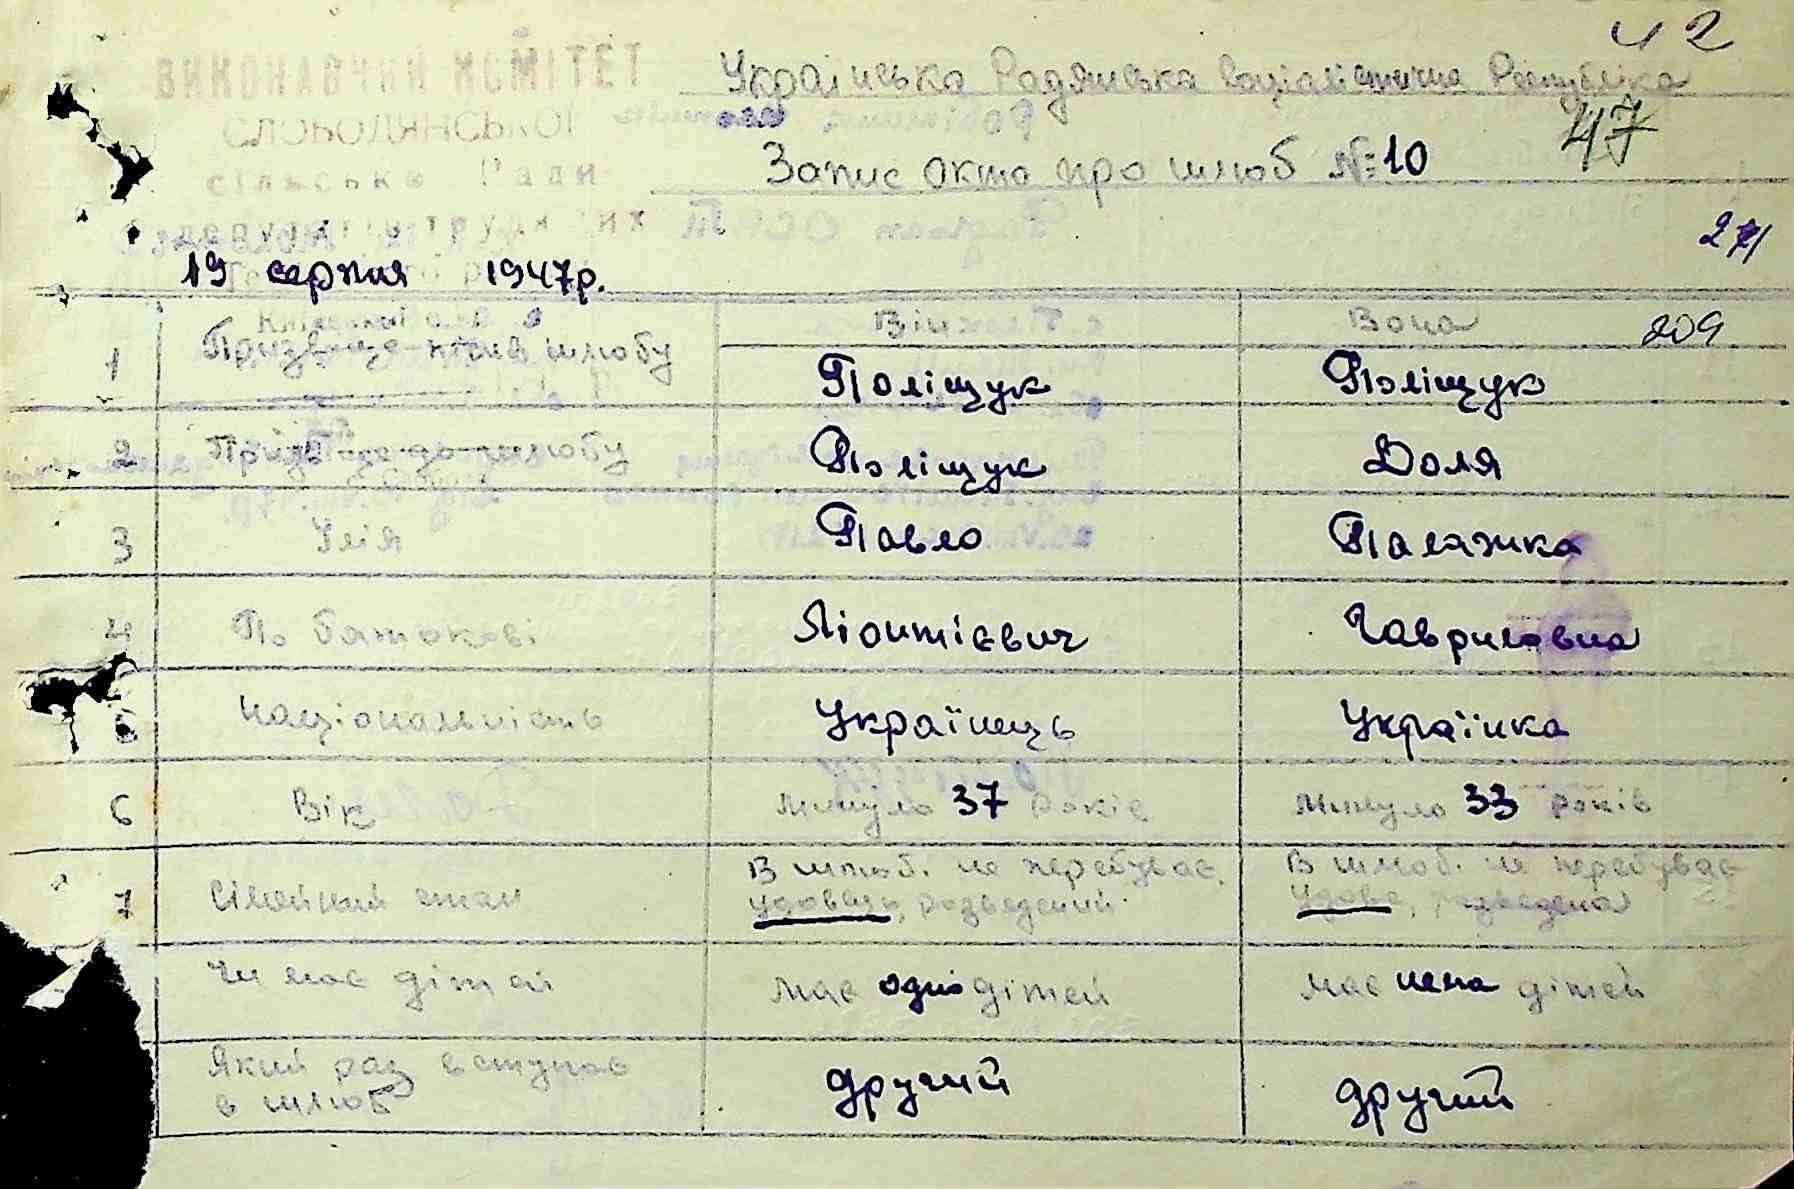 42
ВИКОНАВЧИЙ КОМІТЕТ
Українська Радянська Соціалістична Республіка
СЛОБОДЯНСЬКОЇ
47
сільсько Ради
Запис акта про шлюб №10
депутатів трудящих
271
19 серпня 1947р.
Він Вона 209
1 Призвище після шлюбу Поліщук Поліщук
2 Призвище до шлюбу Поліщук Доля
3 Імія Павло Палажка
4 По батькові Ліонтієвич Гавриловна
5 Національність Українець Українка
6 Вік минуло 37 років минуло 33 років
В шлюб. не перебуває, В шлюб. не перебуває
7 Сімейний стан удовець, розведений удова, розведена
Чи має дітей має одно дітей має нема дітей
Який раз вступає
в шлюб другий другий